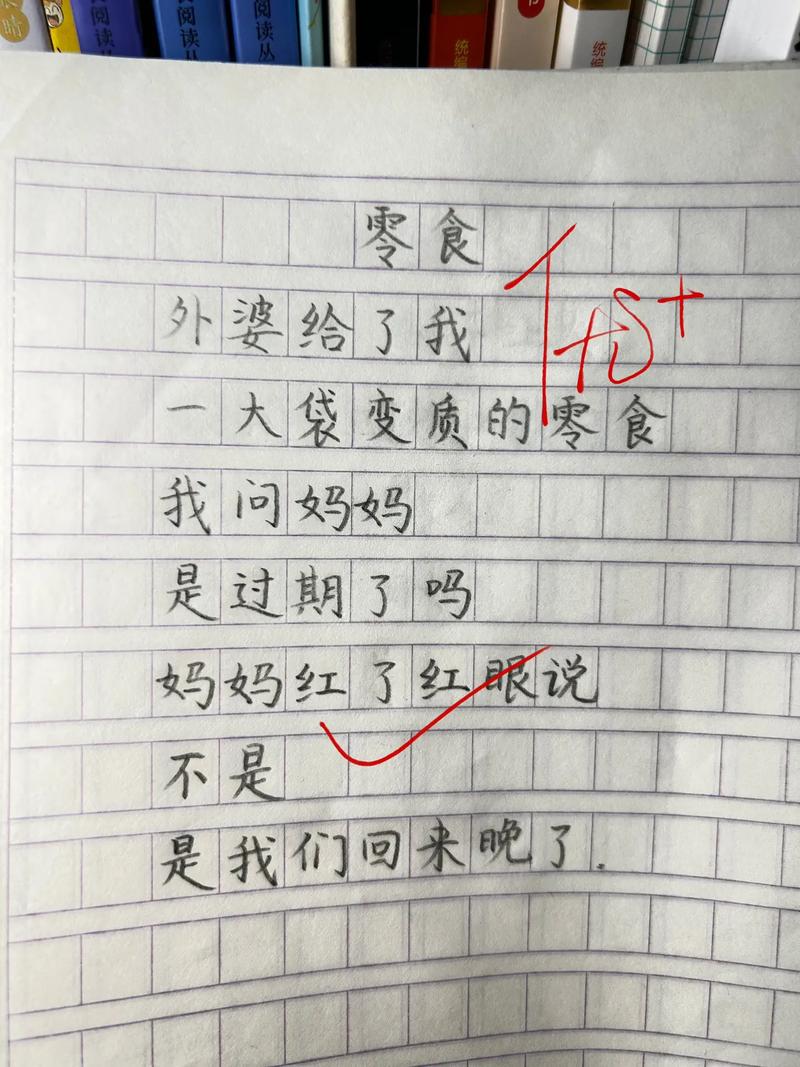 阅读丛
阅读丛
阅读丛
统编
统编
零食
外婆给了我
一大袋变质的零食
我问妈妈
是过期了吗
妈妈红了红眼说
不是
是我们回来晚了.